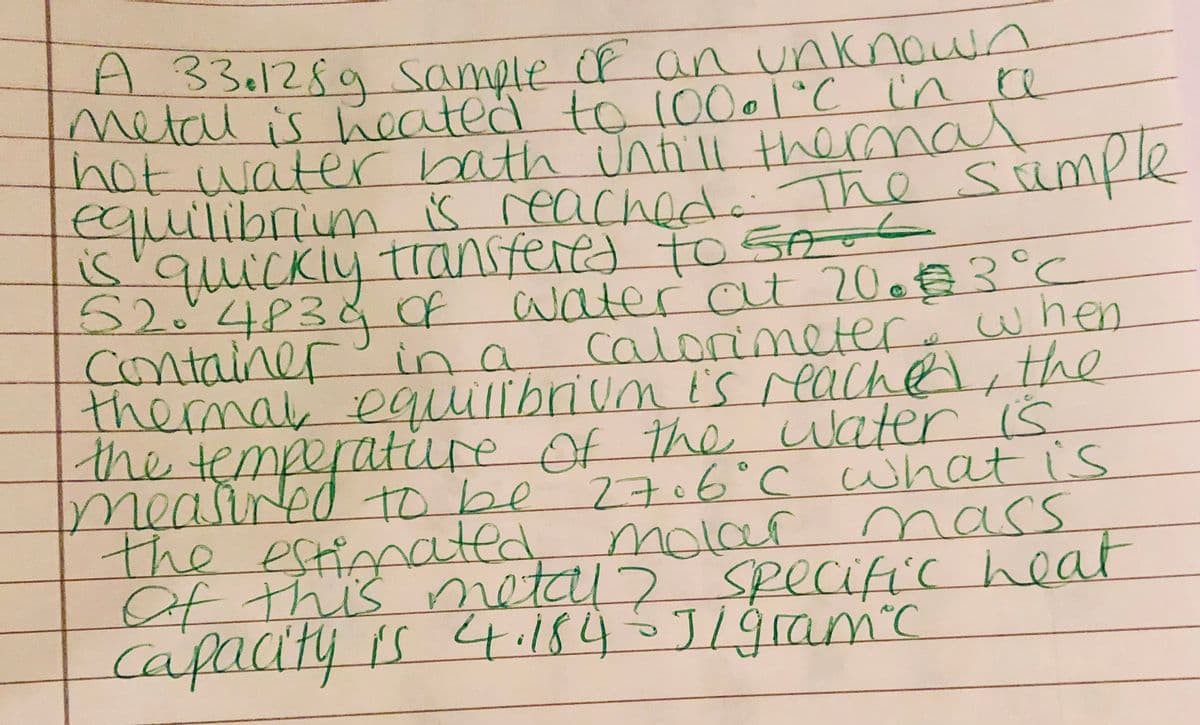 A 33.128g sample of an unknown
metal is heated to 100.1°C in a
hot water bath untill thermal
equilibrium is reached. The sample
is quickly transfered to
52.483g of water at 20.3°C
container in a calorimeter. when
thermal equilibrium is reached, the
the temperature of the water is
measured to be 27.6°C what is
the estimated molar mass
of this metal? specific heat
capacity is 4.184 J/gram°C